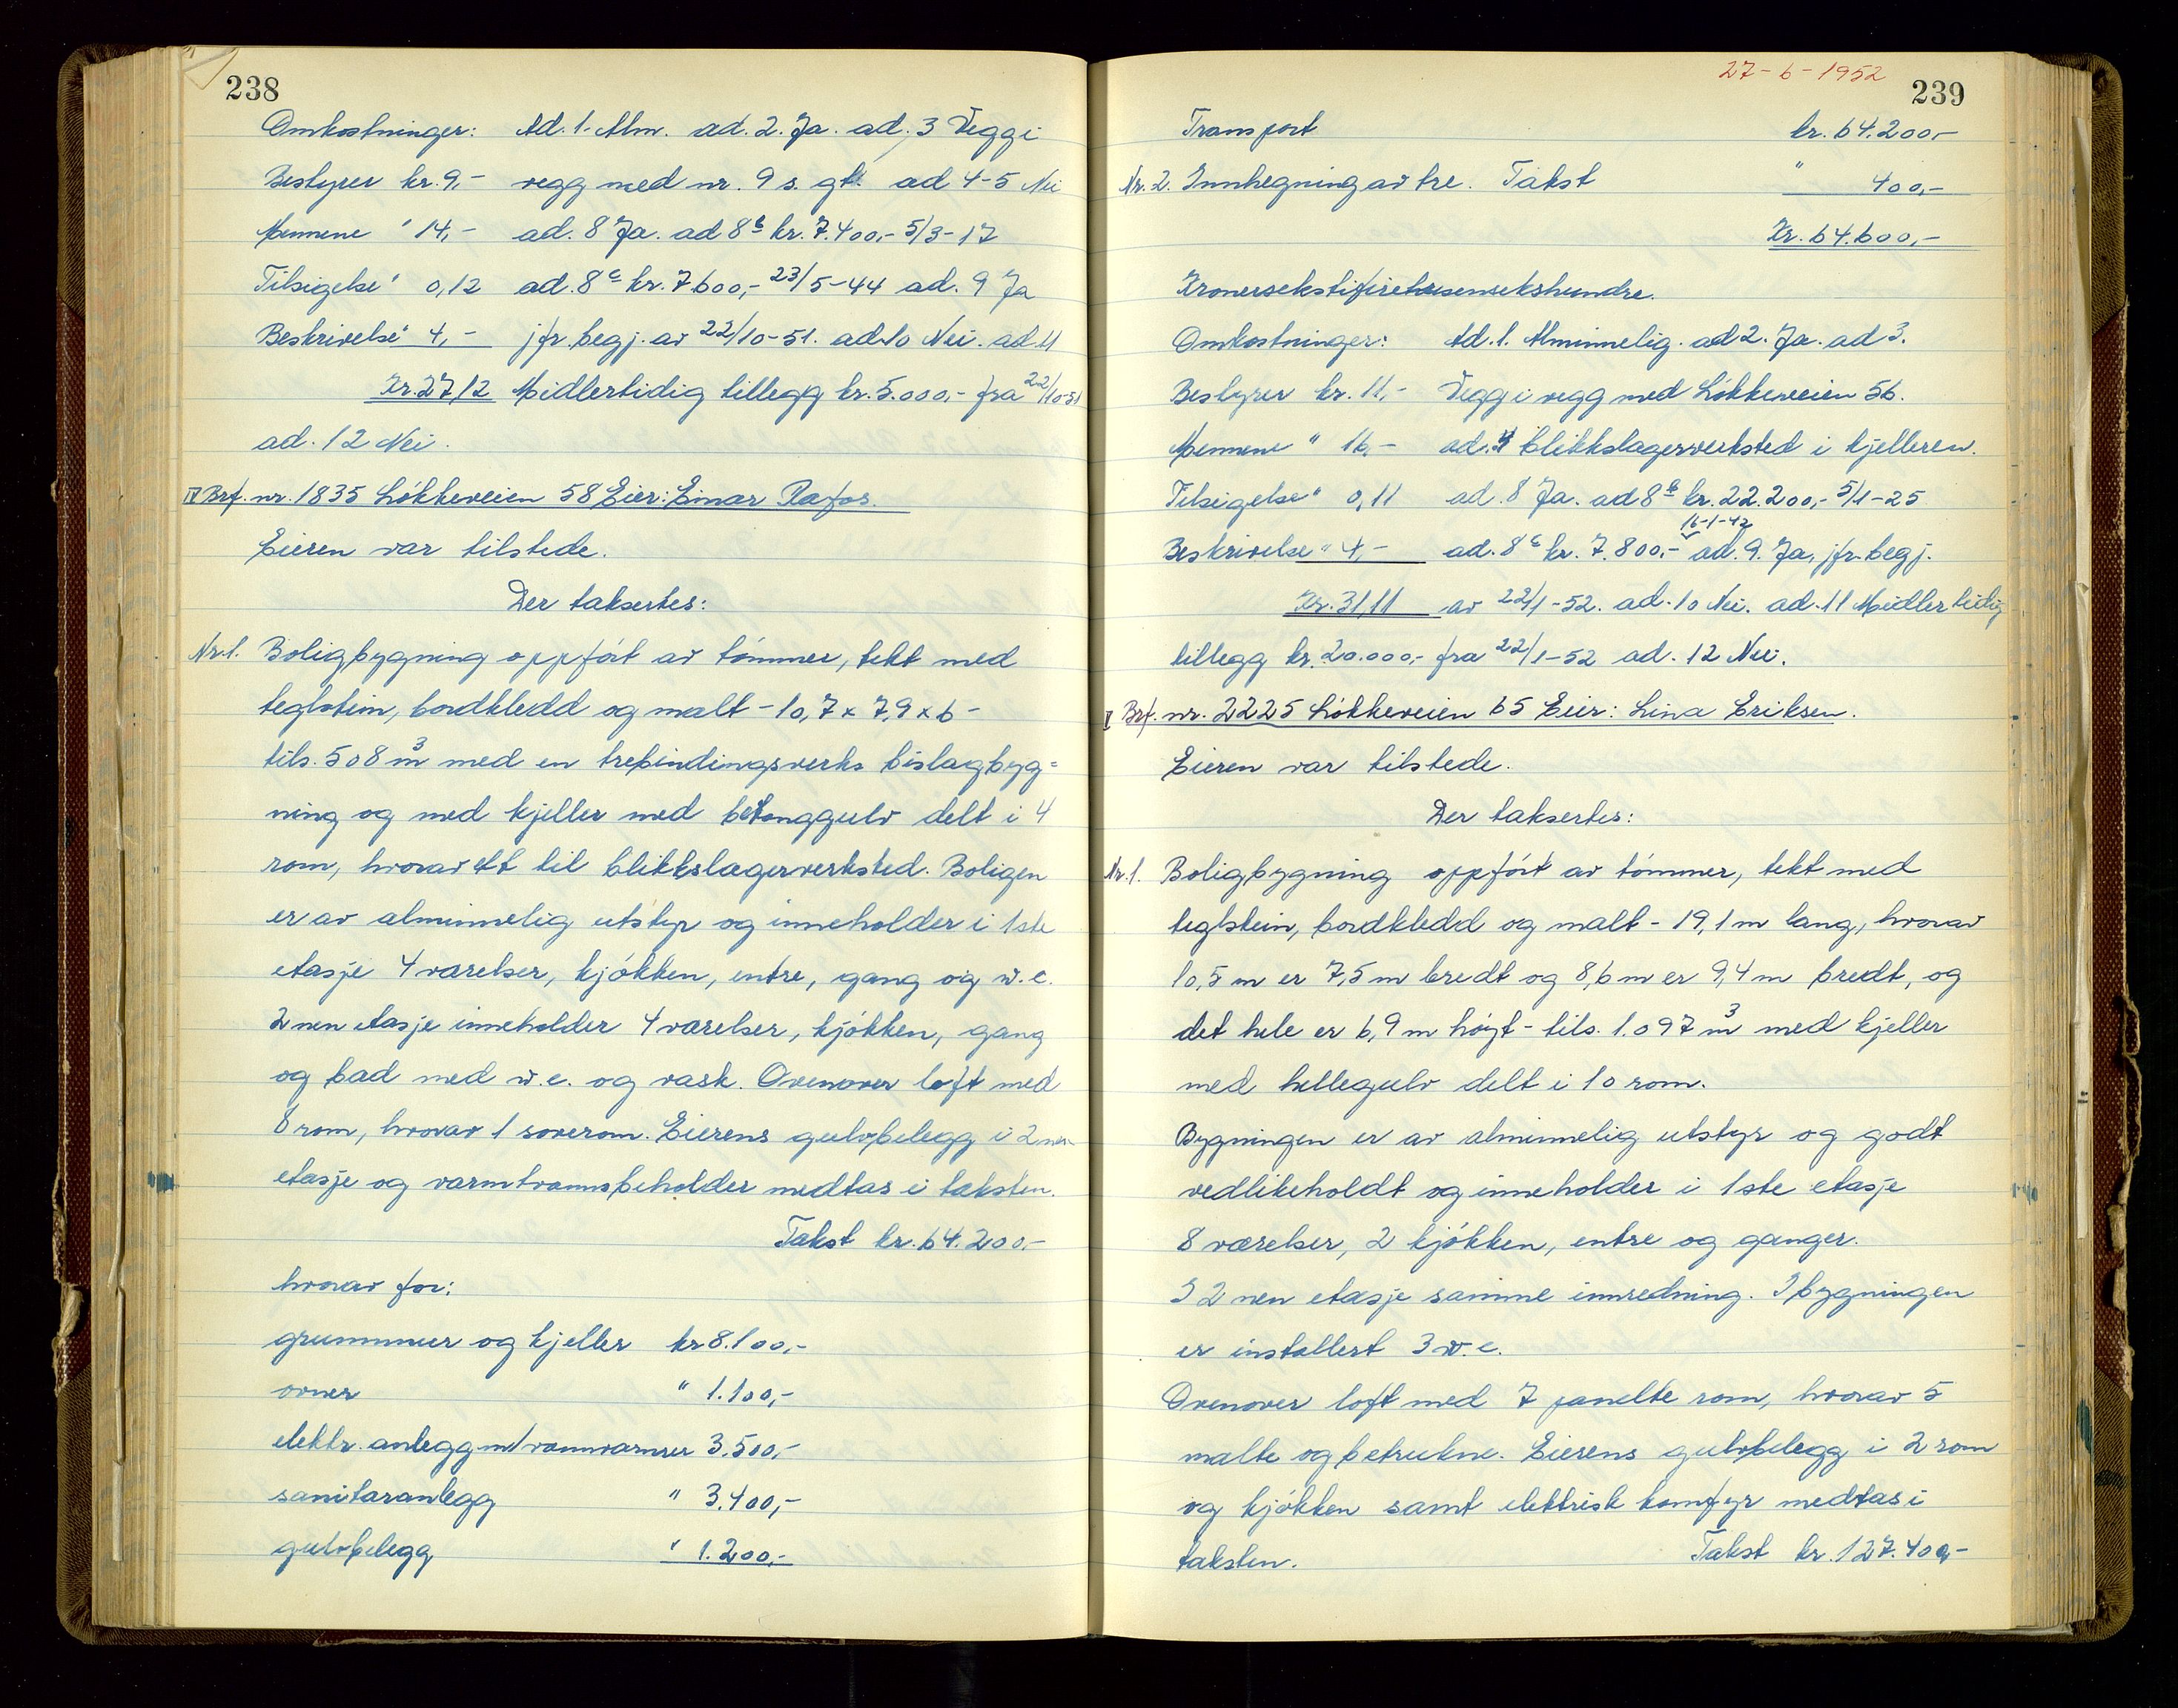 238
Omkostninger: Ad. 1. Alm. ad. 2. Ja. ad. 3 Vegg i
Bestyrer kr. 9,- vegg med nr. 9 s. gt. ad 4-5 Nei
Mennene " 14,- ad. 8 Ja. ad 8 b kr. 7.400,- 5/3-17
Tilsigelse " 0,12 ad. 8 c kr. 7.600,- 23/5-44 ad. 9 Ja
Beskrivelse " 4,- jfr. begj. av 22/10-51. ad. 10 Nei. ad. 11
Kr. 27,12 Midlertidig tillegg kr. 5.000,- fra 22/10-51
ad. 12 Nei.
IV Brf. nr. 1835 Lökkeveien 58 Eier: Einar Rafos.
Eieren var tilstede.
Der taksertes:
Nr. 1. Boligbygning oppfört av tömmer, tekt med
teglstein, bordkledd og malt - 10,7 x 7,9 x 6 -
tils. 508 m3 med en trebindingsverks bislagbyg=
ning og med kjeller med betonggulv delt i 4
rom, hvorav ett til blikkslagerverksted. Boligen
er av alminnelig utstyr og inneholder i 1ste
etasje 4 værelser, kjökken, entre, gang og w.c.
2nen etasje inneholder 4 værelser, kjökken, gang
og bad med w.c. og vask. Ovenover loft med
8 rom, hvorav 1 soverom. Eierens gulvbelegg i 2nen
etasje og varmtvannsbeholder medtas i taksten.
Takst kr. 64.200,-
hvorav for:
grunnmur og kjeller kr 8.100,-
ovner " 1.100,-
elektr. anlegg m/vannvarmer 3.500,-
sanitæranlegg " 3.400,-
gulvbelegg " 1.200,-
27-6-1952
239
Transport kr. 64.200,-
Nr. 2. Innhegning av tre. Takst " 400,-
Kr. 64.600,-
Kronersekstifiretusensekshundre.
Omkostninger: Ad. 1. Alminnelig. ad 2. Ja. ad 3.
Bestyrer kr. 11,- Vegg i vegg med Lökkeveien 56.
Mennene " 16,- ad. 4 blikkslagerverksted i kjelleren.
Tilsigelse " 0,11 ad. 8 Ja. ad 8 b kr. 22.200,- 5/1-25
16-1-42
Beskrivelse " 4,- ad. 8 c kr. 7.800,- ad. 9. Ja, jfr. begj.
Kr. 31,11 av 22/1-52. ad. 10 Nei. ad. 11 Midlertidig
tillegg kr. 20.000,- fra 22/1-52 ad. 12 Nei.
V Brf. nr. 2225 Lökkeveien 65 Eier: Lina Eriksen.
Eieren var tilstede.
Der taksertes:
Nr. 1. Boligbygning oppfört av tömmer, tekt med
teglstein, bordkledd og malt - 19,1 m lang, hvorav
10,5 m er 7,5 m bredt og 8,6 m er 9,4 m bredt, og
det hele er 6,9 m höyt - tils. 1.097 m3 med kjeller
med hellegulv delt i 10 rom.
Bygningen er av alminnelig utstyr og godt
vedlikeholdt og inneholder i 1ste etasje
8 værelser, 2 kjökken, entre og ganger.
I 2nen etasje samme innredning. I bygningen
er installert 3 w.c.
Ovenover loft med 7 panelte rom, hvorav 5
malte og betrukne. Eierens gulvbelegg i 2 rom
og kjökken samt elektrisk komfyr medtas i
taksten. Takst kr. 127.400,-